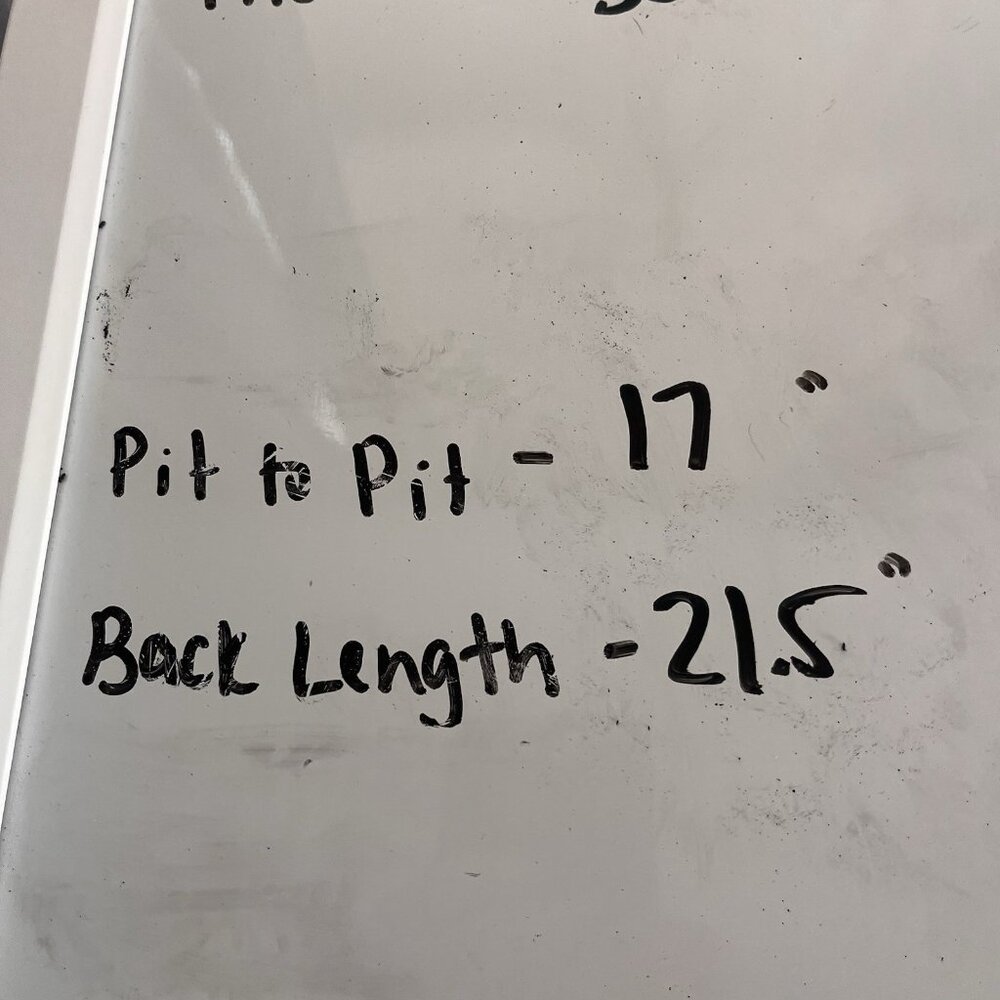 Pit to Pit - 17"
Back Length - 21.5"